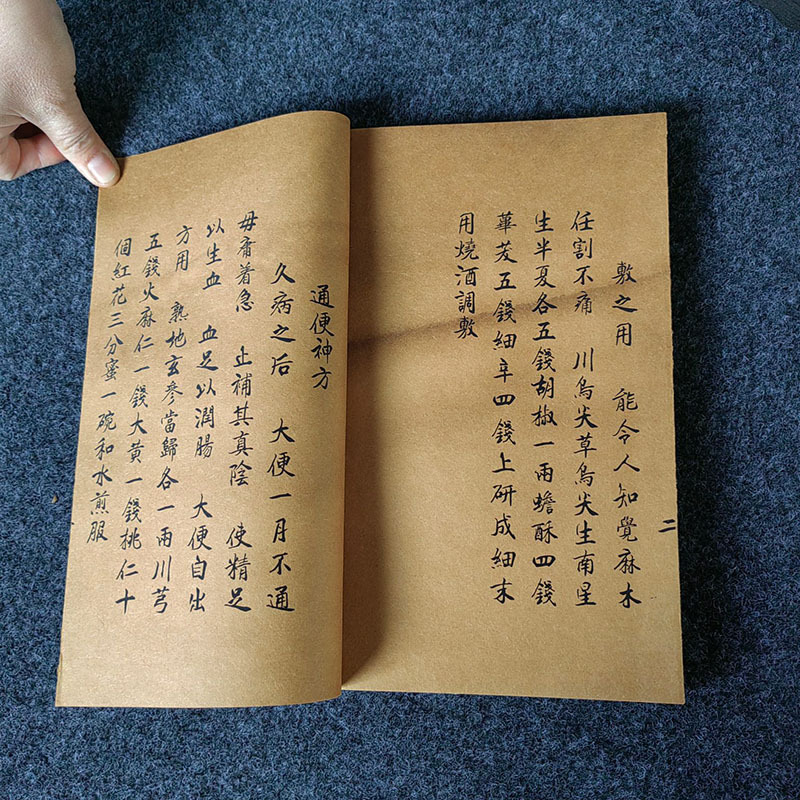 敷之用　能令人知覺麻木
任割不痛　川烏尖草烏尖生南星
生半夏各五錢胡椒一兩蟾酥四錢
蓽茇五錢細辛四錢上研成細末
用燒酒調敷
二
通便神方
久病之后　大便一月不通
毋庸着急　止補其真陰　使精足
以生血　血足以潤腸　大便自出
方用　熟地玄參當歸各一兩川芎
五錢火麻仁一錢大黃一錢桃仁十
個紅花三分蜜一碗和水煎服